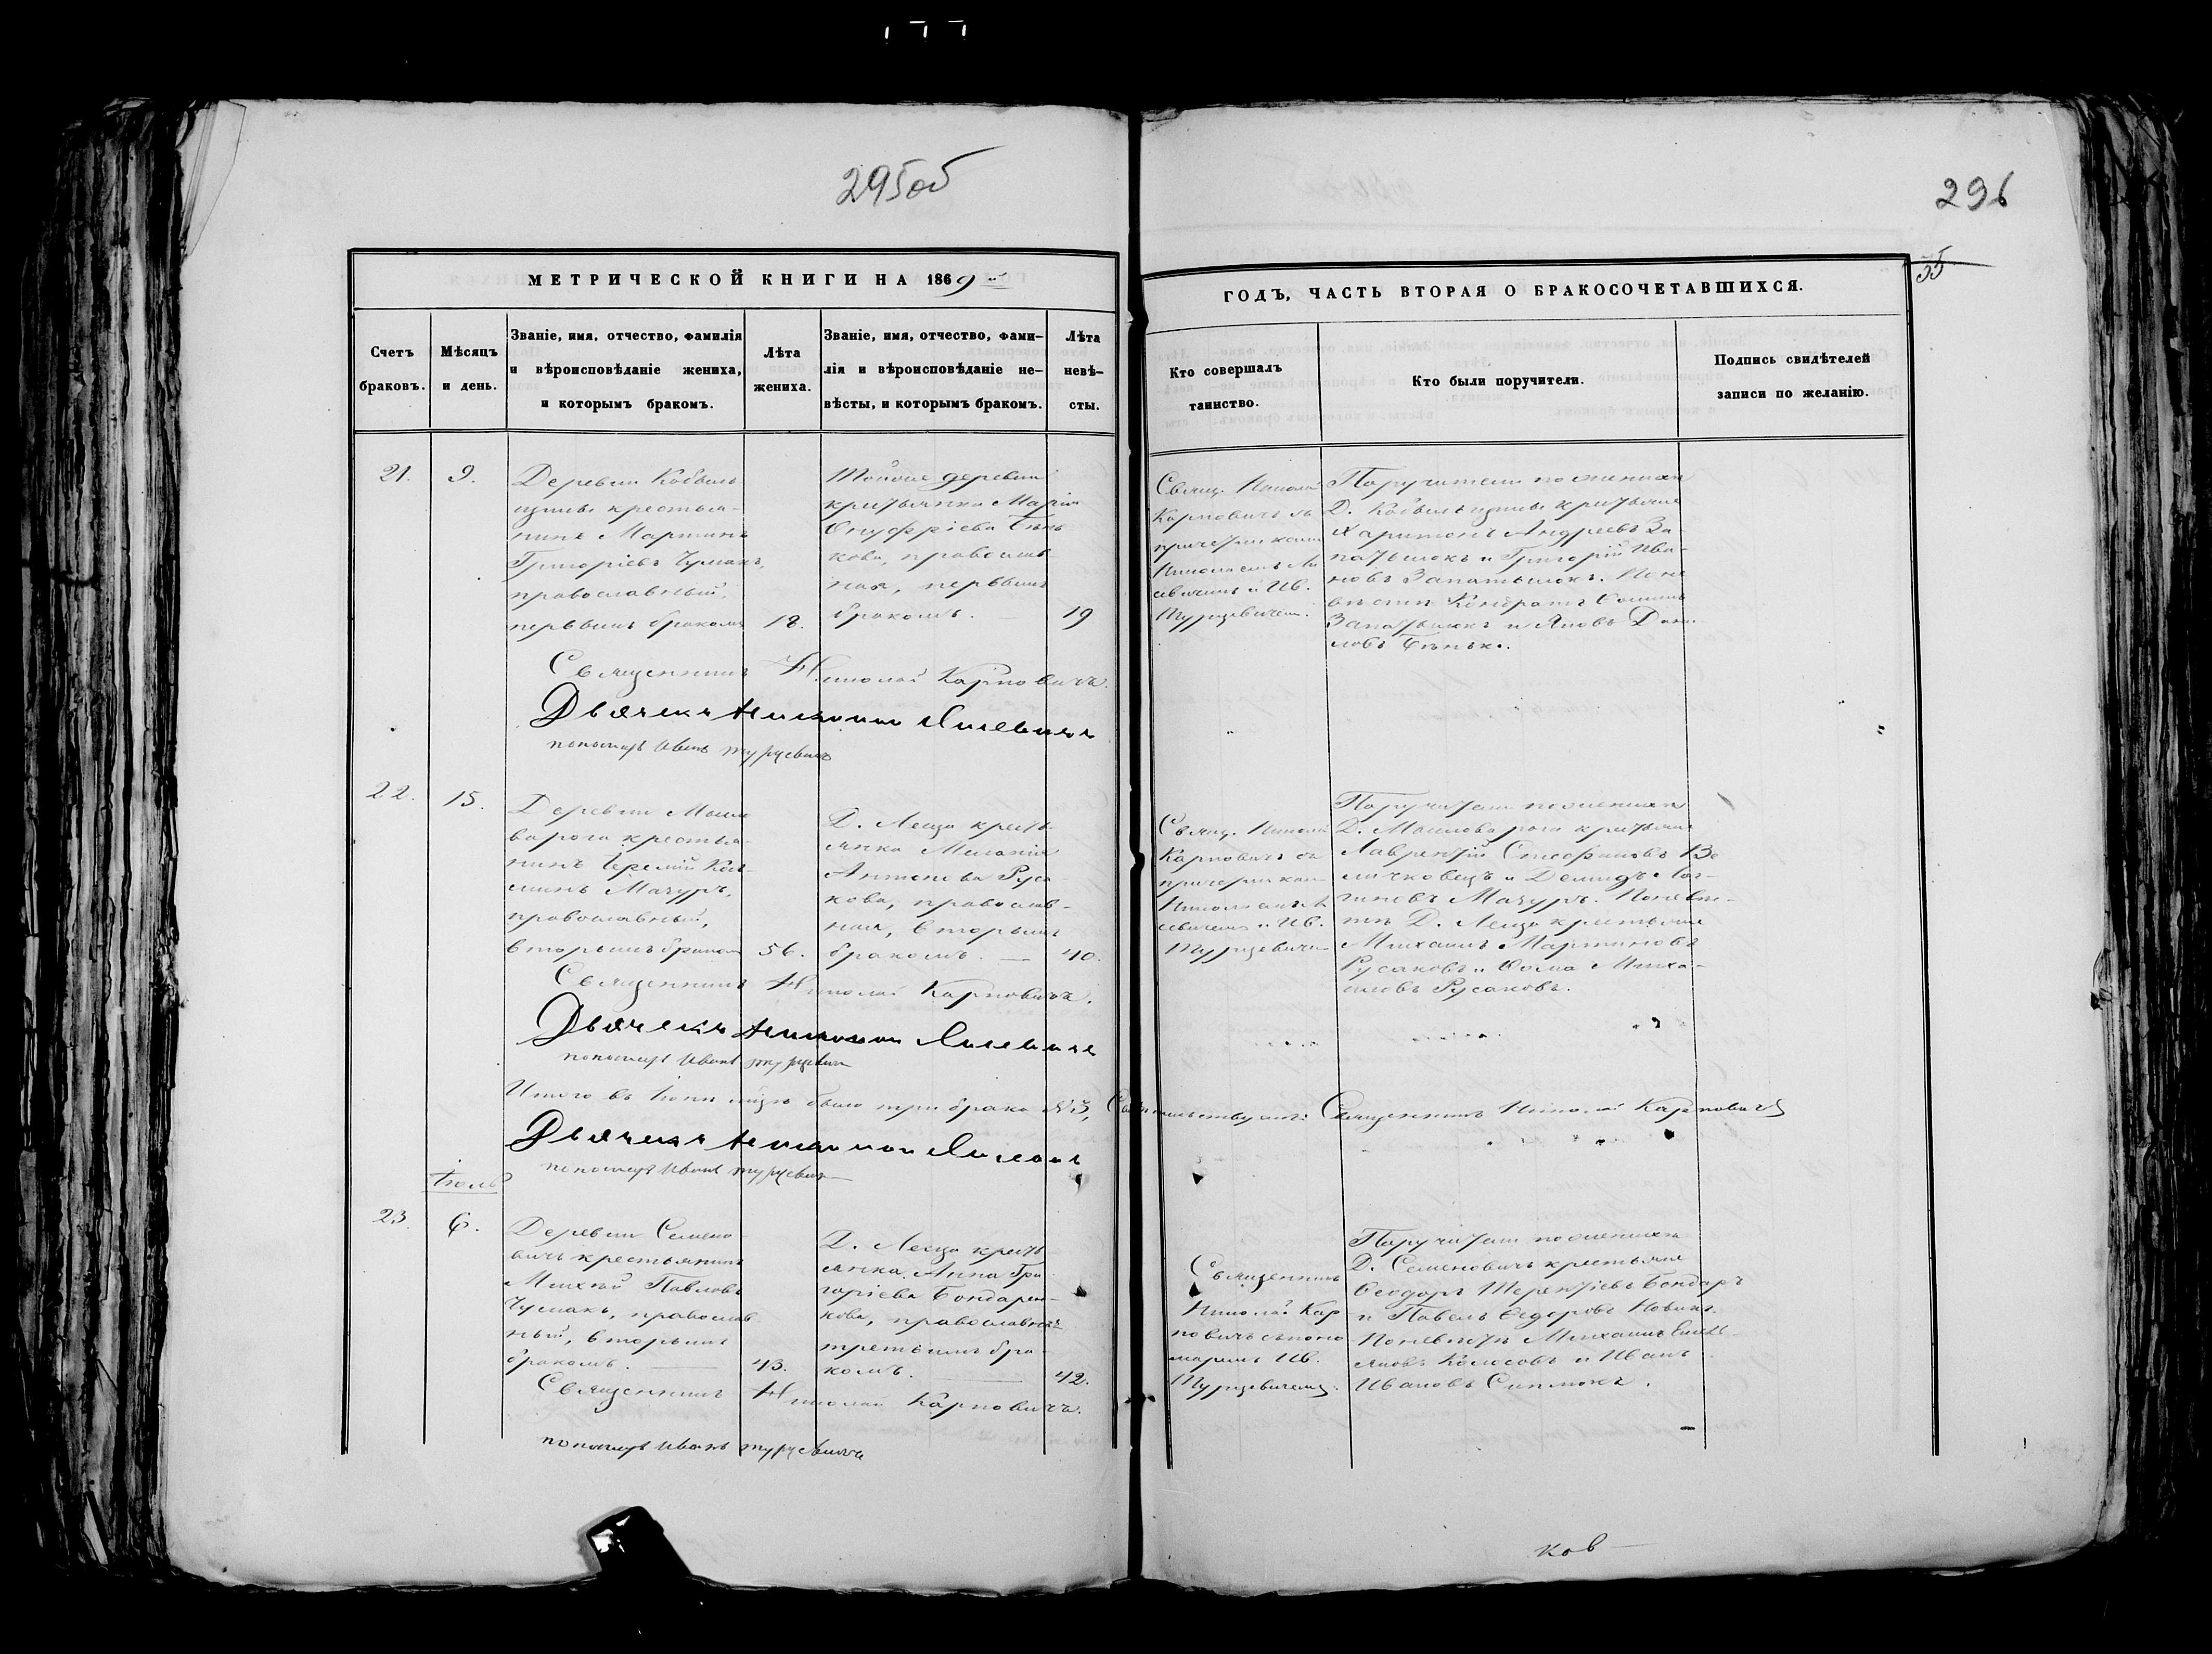 295об
296
35
МЕТРИЧЕСКОЙ КНИГИ НА 1869
ГОДЪ, ЧАСТЬ ВТОРАЯ О БРАКОСОЧЕТАВШИХСЯ.
Счетъ браковъ.
Мѣсяцъ и день.
Званіе, имя, отчество, фамилія
и вѣроисповѣданіе жениха,
и которымъ бракомъ.
Лѣта жениха.
Званіе, имя, отчество, фами-
лія и вѣроисповѣданіе не-
вѣсты, и которымъ бракомъ.
Лѣта
невѣ-
сты.
Кто совершалъ
таинство.
Кто были поручители.
Подпись свидѣтелей
записи по желанію.
21.
9.
Деревни
крестья-
нинъ Мартинъ
Григорієвъ Чумакъ,
православный,
первымъ бракомъ
18.
деревни
Марія
Онуфріева Бѣнь
кова, православ
ная, первымъ
бракомъ.
19
Свящ. Николай
Карповичъ съ
Николаемъ Ли
севичемъ и Ив.
Турцевичем.
Поручители по женихѣ
Д.
Харитонъ Андреевъ За
и Григорій Ива-
новъ
Кондратъ
и Яковъ Дани
ловъ Бѣнько.
Священникъ Николай Карповичъ.
Дьячекъ Николай Лисевичъ
пономарь Иванъ Турцевичъ
22.
15.
Деревни Мило
варога крестья-
нинъ Іеремій
Мачуръ,
православный,
вторымъ браком
56.
Д. Лещо кресть-
янка Меланія
Антонова Руса
кова, православ-
ная, вторымъ
бракомъ. —
40.
Свящ. Николай
Карповичъ съ
Николаемъ Ли
севичемъ и Ив.
Турцевичем
Поручители по женихѣ
Д. Миловарога
Лаврентій Стефановъ Ве
личковецъ и Демидъ Лог-
гиновъ Мачуръ. По невѣс-
тѣ Д. Лещо крестьяне
Михаилъ Мартиновъ
Русаковъ и Ѳома Миха-
иловъ Русаковъ.
Священникъ Николай Карповичъ.
Дьячекъ Николай Лисевичъ
пономарь Иванъ Турцевичъ
Итого въ Іюни мѣсяцѣ было три брака №3, Свидѣтельствуютъ: Священникъ Николай Карповичъ
Дьячекъ Николай Лисевичъ
пономарь Иванъ Турцевичъ
Іюль
23.
6.
Деревни Семено
вичъ крестьянинъ
Михѣй Павловъ
Чумакъ, православ
ный, вторымъ
бракомъ. —
43.
Д. Лещо кресть
янка Анна Гри
горіева Бондарен-
кова, православная
третьимъ бра-
комъ. —
42.
Священникъ
Николай Кар
повичъ съ поно
маремъ Ив.
Турцевичемъ.
Поручители по женихѣ
Д. Семеновичъ крестьяне
Ѳеодоръ Терентіевъ Бондаръ
и Павелъ Ѳедоровъ Новикъ.
По невѣстѣ Михаилъ Емель-
яновъ Колосовъ и Иванъ
Ивановъ
Священникъ Николай Карповичъ.
пономарь Иванъ Турцевичъ
ков